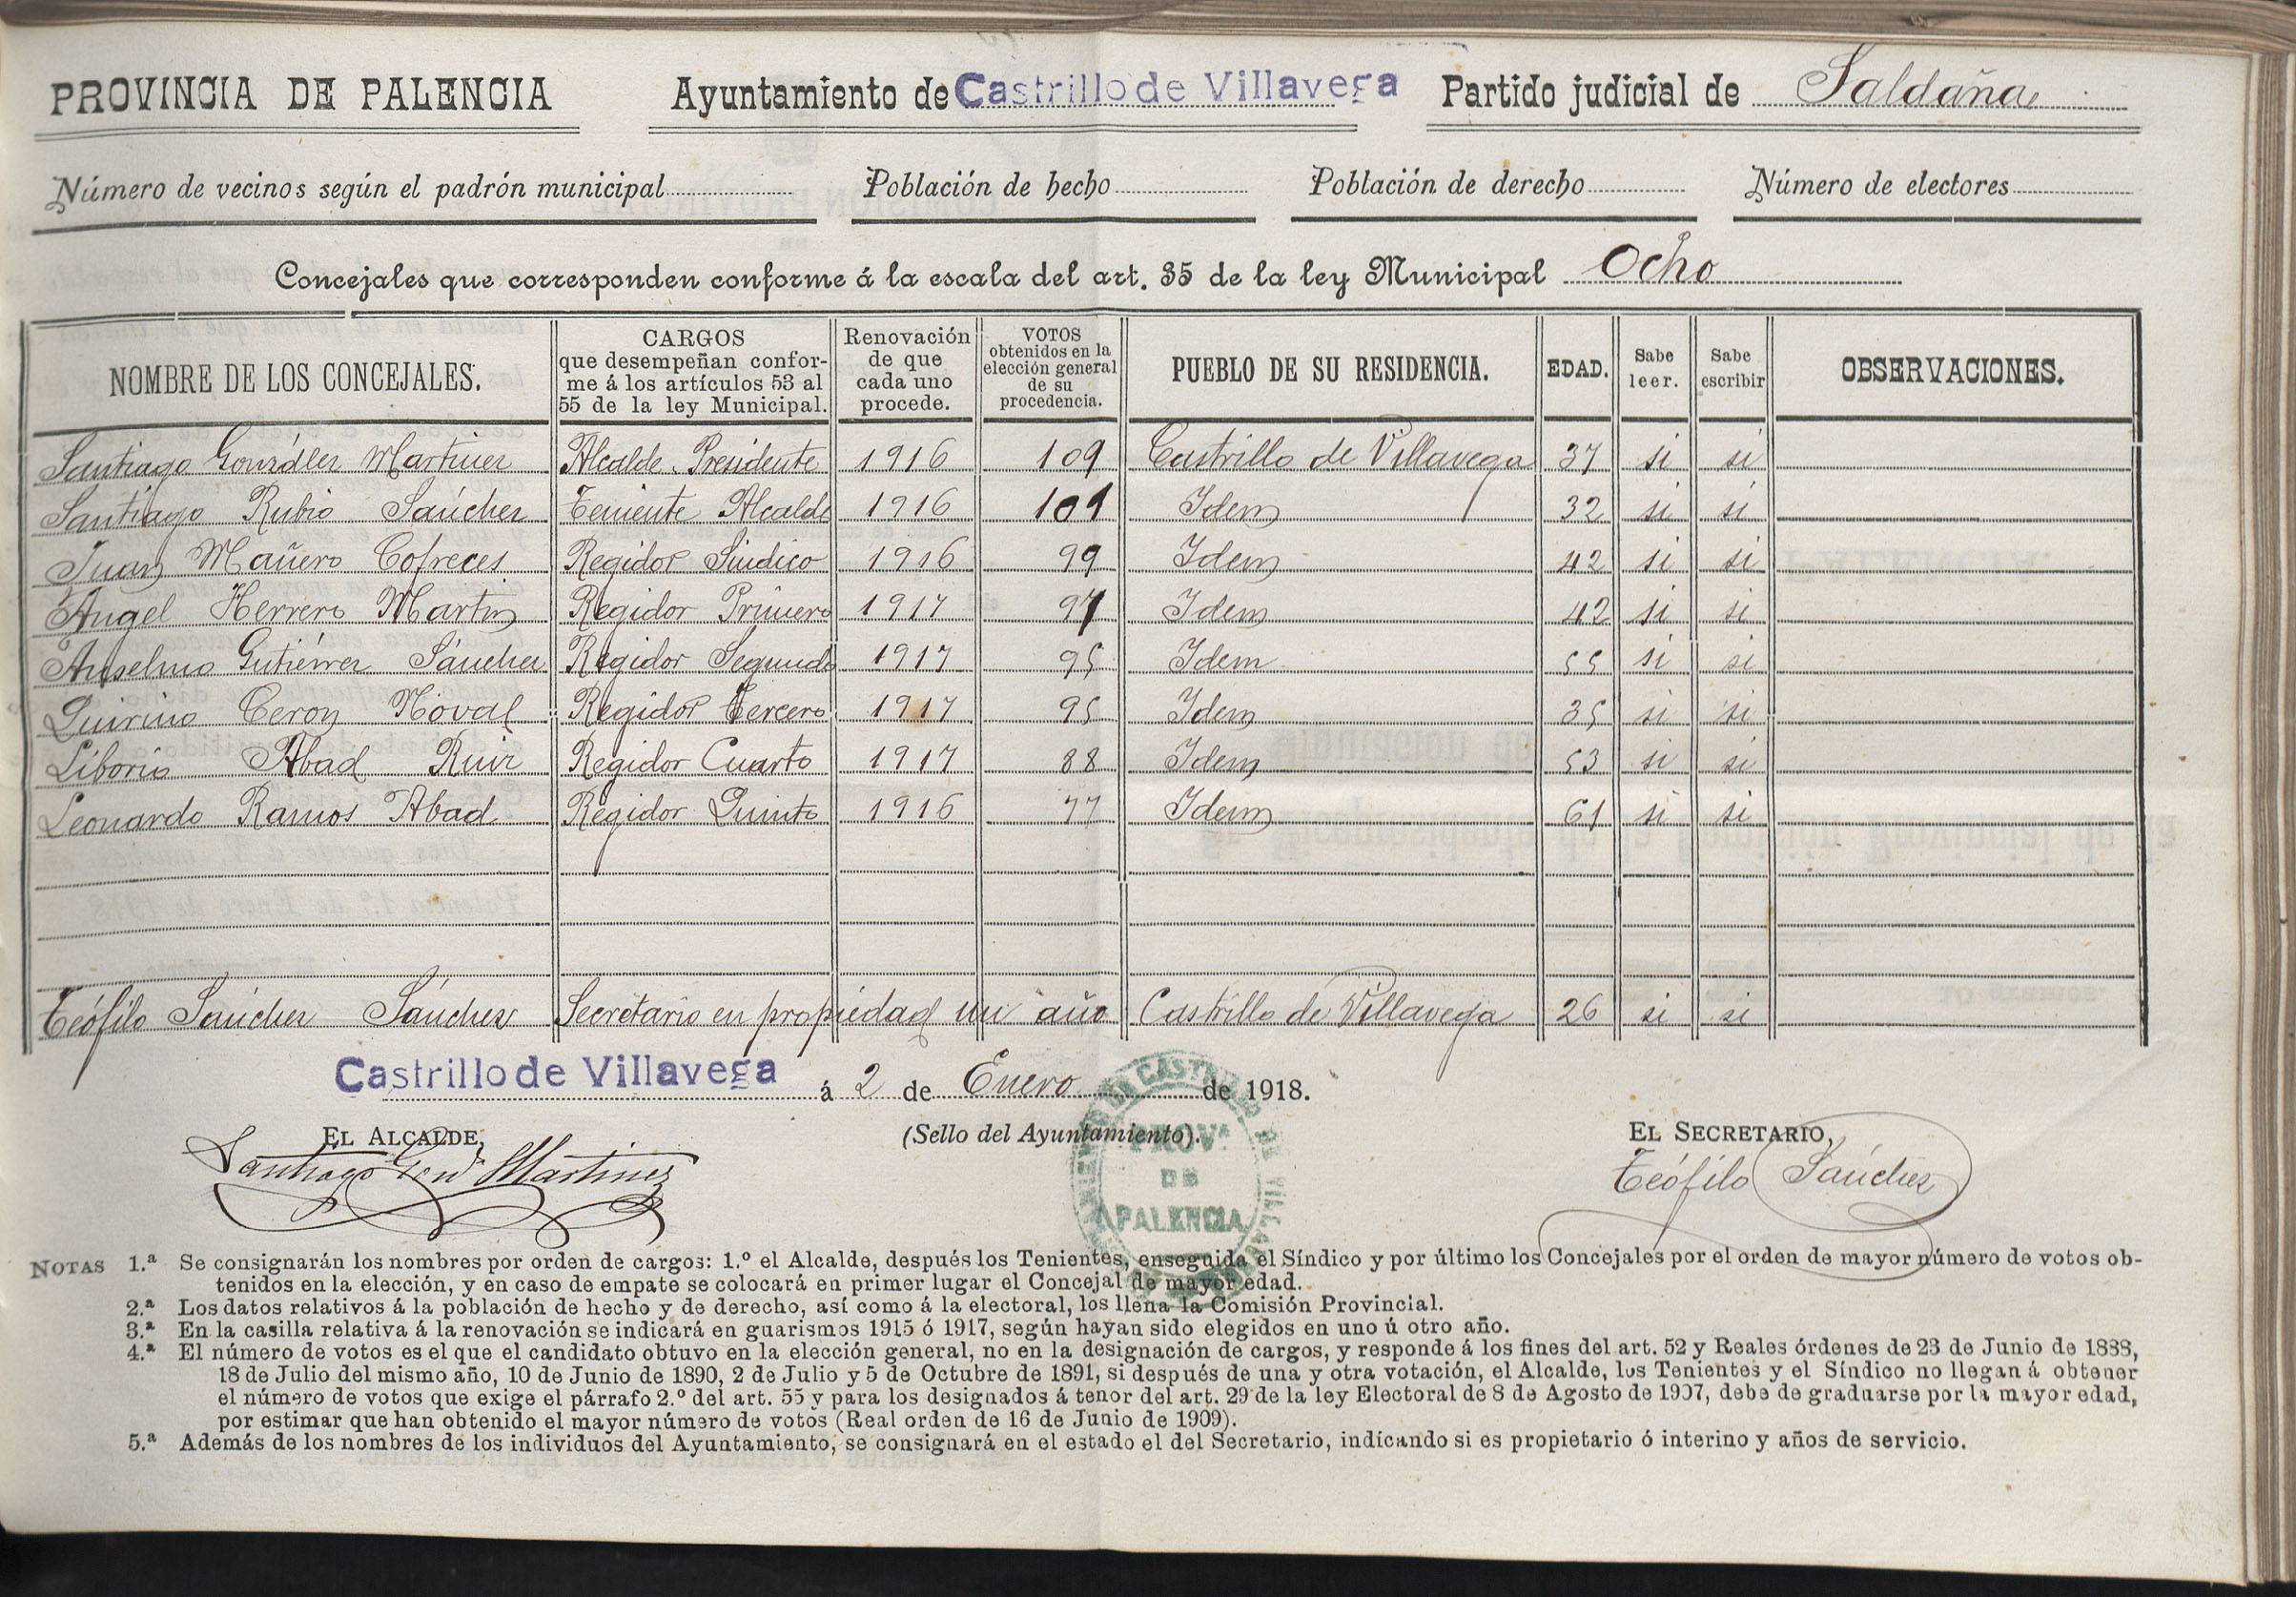 PROVINCIA DE PALENCIA Ayuntamiento de Castrillo de Villavega Partido judicial de Saldaña
Número de vecinos según el padrón municipal Población de hecho Población de derecho Número de electores
Concejales que corresponden conforme á la escala del art. 35 de la ley Municipal Ocho
NOMBRE DE LOS CONCEJALES. CARGOS que desempeñan conforme á los artículos 53 al 55 de la ley Municipal. Renovación de que cada uno procede. VOTOS obtenidos en la elección general de su procedencia. PUEBLO DE SU RESIDENCIA. EDAD. Sabe leer. Sabe escribir OBSERVACIONES.
Santiago González Martinez Alcalde Presidente 1916 109 Castrillo de Villavega 37 si si
Santiago Rubio Sánchez Teniente Alcalde 1916 101 Idem 32 si si
Juan Mañero Cofreces Regidor Sindico 1916 99 Idem 42 si si
Angel Herrero Martin Regidor Primero 1917 97 Idem 42 si si
Anselmo Gutiérrez Sánchez Regidor Segundo 1917 95 Idem 55 si si
Quirino Ceron Noval Regidor Tercero 1917 95 Idem 35 si si
Liborio Abad Ruiz Regidor Cuarto 1917 88 Idem 53 si si
Leonardo Ramos Abad Regidor Quinto 1916 77 Idem 61 si si
Teófilo Sánchez Sánchez Secretario en propiedad un año Castrillo de Villavega 26 si si
Castrillo de Villavega á 2 de Enero de 1918.
EL ALCALDE, (Sello del Ayuntamiento). EL SECRETARIO,
Santiago Gonz Martinez Teófilo Sánchez
PROVª
DE
PALENCIA
NOTAS 1.ª Se consignarán los nombres por orden de cargos: 1.º el Alcalde, después los Tenientes, enseguida el Síndico y por último los Concejales por el orden de mayor número de votos ob-
tenidos en la elección, y en caso de empate se colocará en primer lugar el Concejal de mayor edad.
2.ª Los datos relativos á la población de hecho y de derecho, así como á la electoral, los llena la Comisión Provincial.
3.ª En la casilla relativa á la renovación se indicará en guarismos 1915 ó 1917, según hayan sido elegidos en uno ú otro año.
4.ª El número de votos es el que el candidato obtuvo en la elección general, no en la designación de cargos, y responde á los fines del art. 52 y Reales órdenes de 23 de Junio de 1888,
18 de Julio del mismo año, 10 de Junio de 1890, 2 de Julio y 5 de Octubre de 1891, si después de una y otra votación, el Alcalde, los Tenientes y el Síndico no llegan á obtener
el número de votos que exige el párrafo 2.º del art. 55 y para los designados á tenor del art. 29 de la ley Electoral de 8 de Agosto de 1907, debe de graduarse por la mayor edad,
por estimar que han obtenido el mayor número de votos (Real orden de 16 de Junio de 1909).
5.ª Además de los nombres de los individuos del Ayuntamiento, se consignará en el estado el del Secretario, indicando si es propietario ó interino y años de servicio.